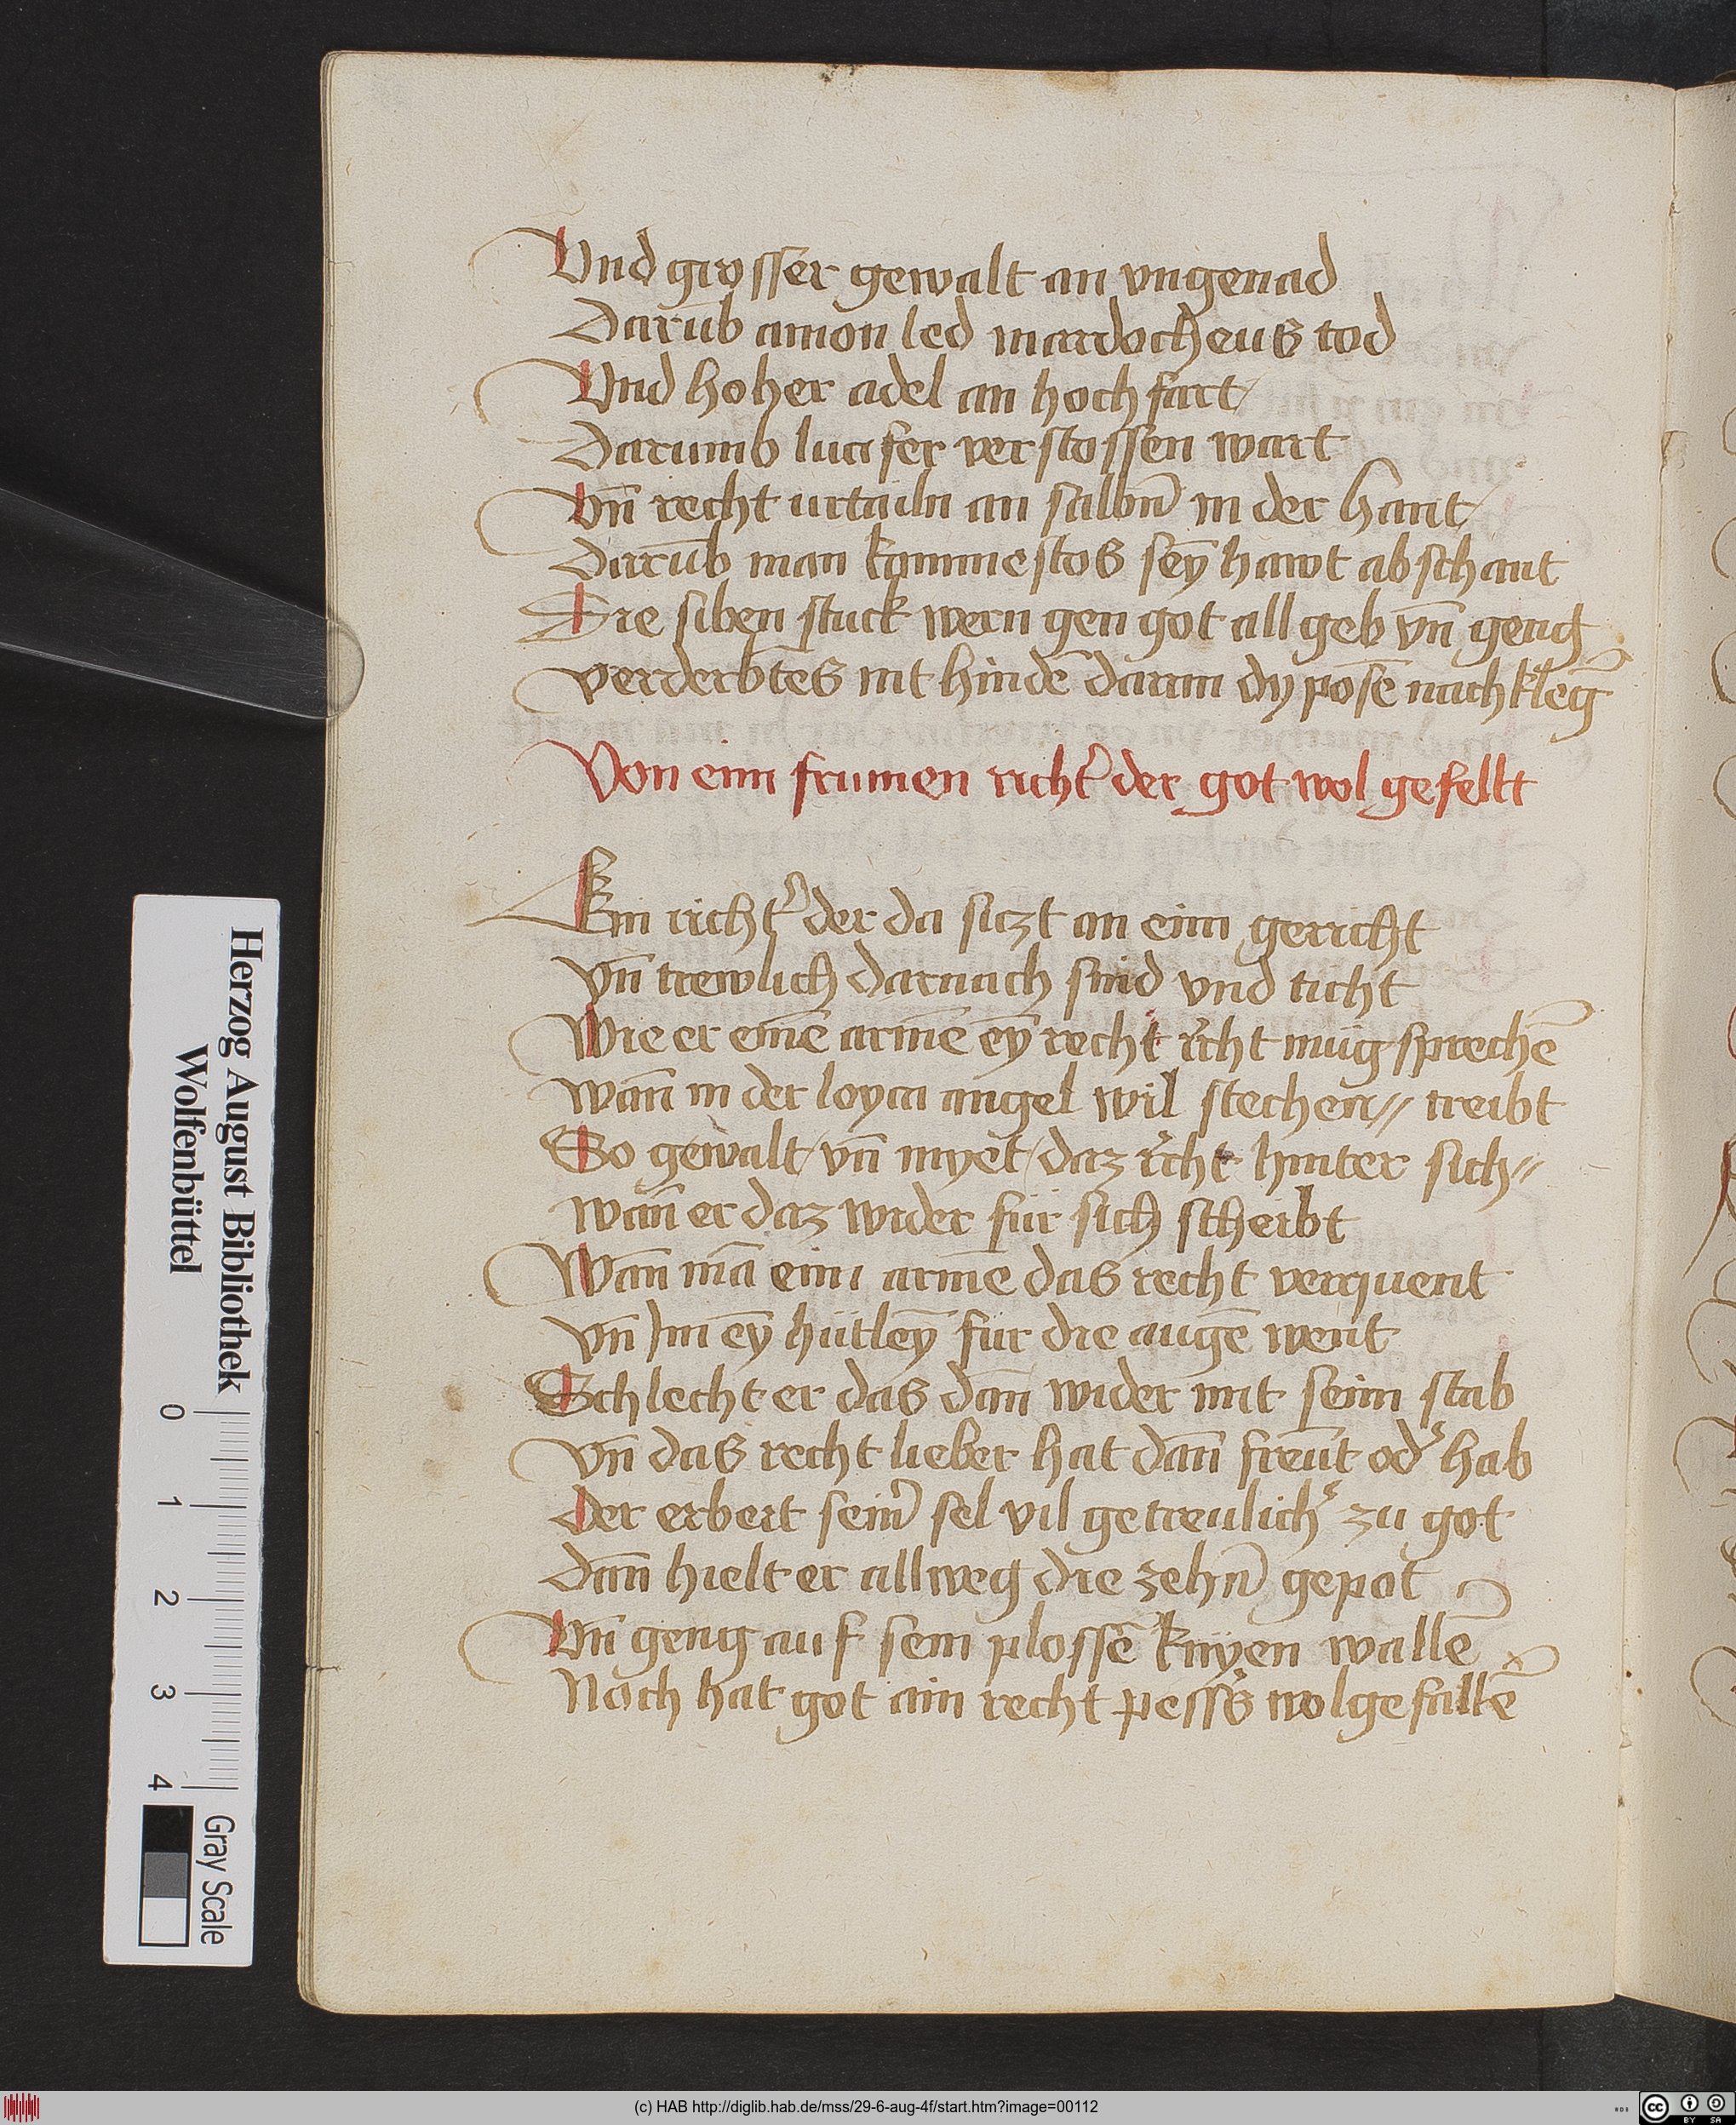 Vnd grosser gewalt an vngenad
Darūb amon led mardocheus tod
Vnd hoher adel an hochfart/
Darumb lucifer verstossen wart
vn̄ recht urtailn an salbn̄ in der hant/
Darūb man kammestos seȳ hawt abschant
Die siben stuck wern gen got all geb vn̄ geng
verderbtes nit hindē daran dy posē nachkleng
Von eim frumen richt' der got wol gefellt
Ein richt' der da siczt an eim gericht
vn̄ trewlich darnach sind vnd ticht
Wie er eīnē armē eȳ recht r̃cht müg sprechē
wan̄ in der loyca angel wil stechen // treibt
So gewalt / vn̄ myet / daz r̃cht hinter sich //
wan̄ er daz wider für sich scheibt
Wan̄ mā eim armē das recht verquent
vn̄ Im eȳ hütleȳ für die augē went
Schlecht er das dan̄ wider mit seim stab
vn̄ das recht lieber hat dan̄ freūt od' hab
Der erbert sein̄' sel vil getreulich' zu got
dan̄ hielt er allweg die zehn̄ gepot
Vn̄ geng auf sein plossē knyen wallē
Noch hat got ain recht pess's wolgefallē
Herzog August Bibliothek
Wolfenbüttel
0 1 2 3 4
Gray Scale
(c) HAB http://diglib.hab.de/mss/29-6-aug-4f/start.htm?image=00112
CC BY SA